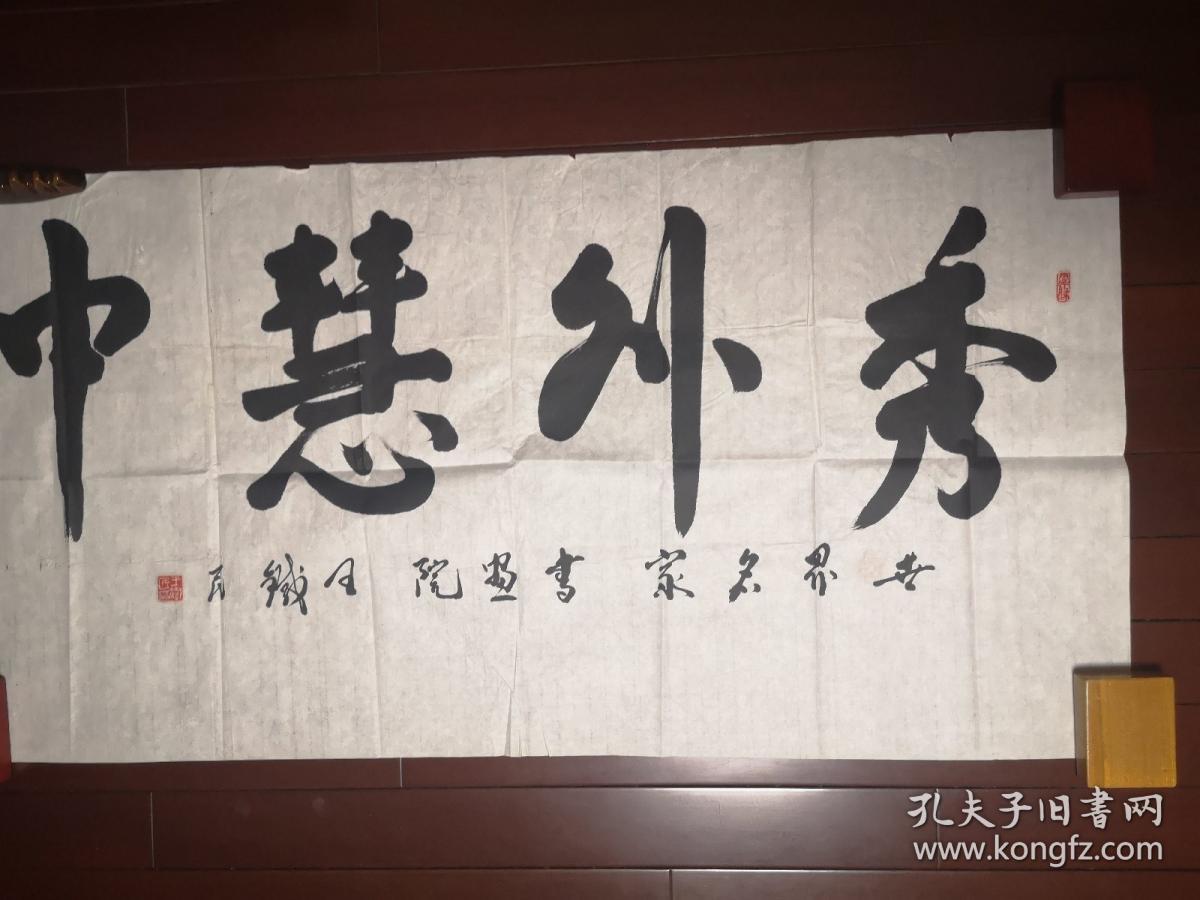 秀外慧中
世界名家书画院王鐵民
孔夫子旧書网
www.kongfz.com